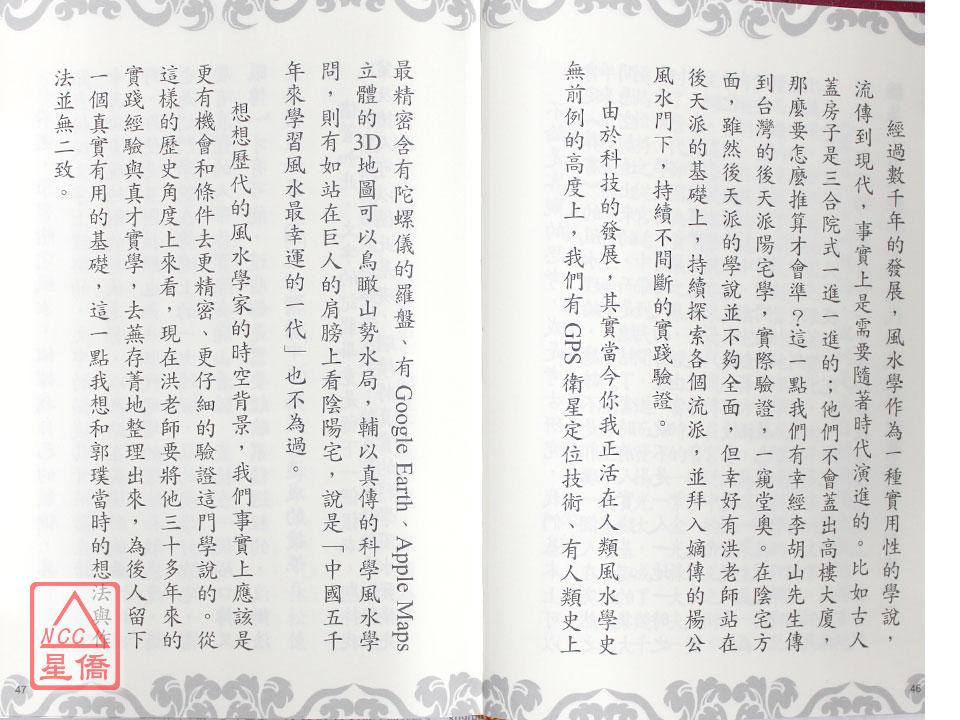 經過數千年的發展，風水學作為一種實用性的學說，
流傳到現代，事實上是需要隨著時代演進的。比如古人
蓋房子是三合院式一進一進的；他們不會蓋出高樓大廈，
那麼要怎麼推算才會準？這一點我們有幸經李胡山先生傳
到台灣的後天派陽宅學，實際驗證，一窺堂奧。在陰宅方
面，雖然後天派的學說並不夠全面，但幸好有洪老師站在
後天派的基礎上，持續探索各個流派，並拜入嫡傳的楊公
風水門下，持續不間斷的實踐驗證。
由於科技的發展，其實當今你我正活在人類風水學史
無前例的高度上，我們有 GPS 衛星定位技術、有人類史上
46
最精密含有陀螺儀的羅盤、有 Google Earth、Apple Maps
立體的 3D 地圖可以鳥瞰山勢水局，輔以真傳的科學風水學
問，則有如站在巨人的肩膀上看陰陽宅，說是「中國五千
年來學習風水最幸運的一代」也不為過。
想想歷代的風水學家的時空背景，我們事實上應該是
更有機會和條件去更精密、更仔細的驗證這門學說的。從
這樣的歷史角度上來看，現在洪老師要將他三十多年來的
實踐經驗與真才實學，去蕪存菁地整理出來，為後人留下
一個真實有用的基礎，這一點我想和郭璞當時的想法與作
法並無二致。
47
NCC
星僑